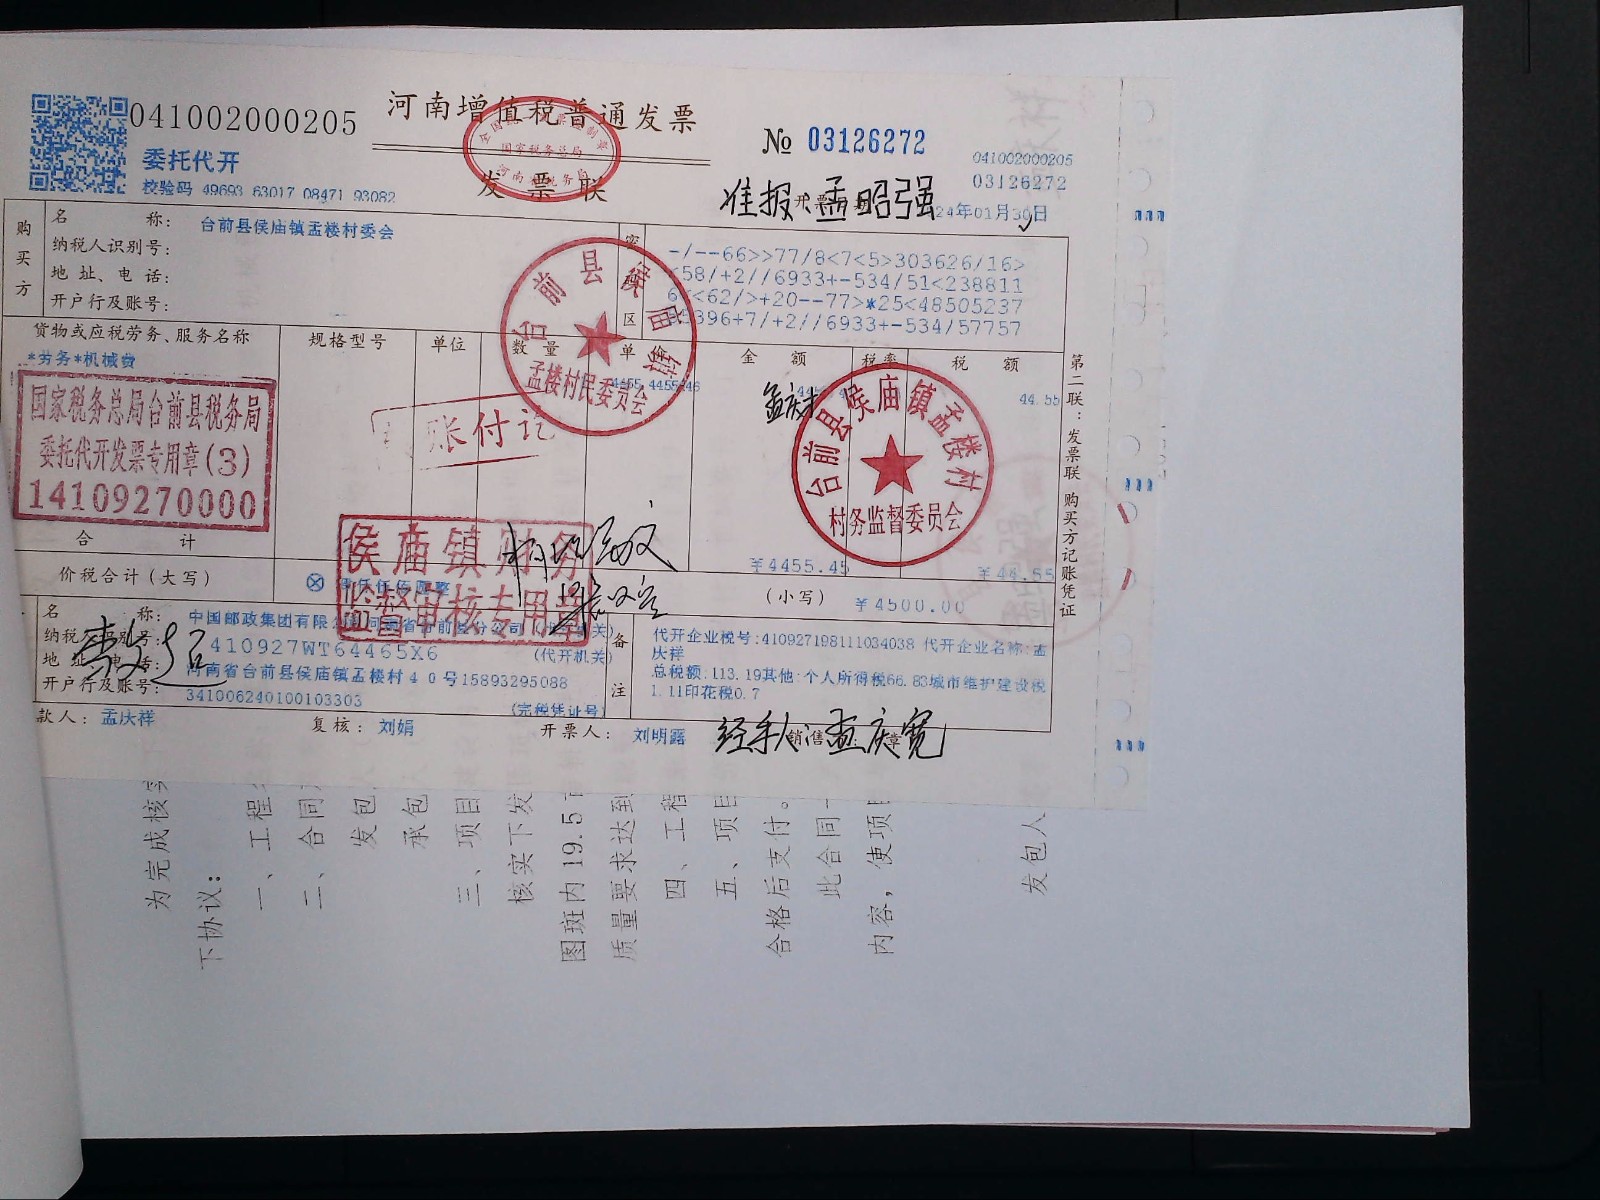 041002000205
河南增值税普通发票
发票联
国家税务总局
河南省税务局
№ 03126272
041002000205
03126272
委托代开
校验码 49693 63017 08471 93082
准报:孟昭强
24年01月30日
购买方
名称: 台前县侯庙镇孟楼村委会
纳税人识别号:
地址、电话:
开户行及账号:
密
区
-/--66>>77/8<7<5>303626/16>
<58/+2//6933+-534/51<238811
6<<62/>+20--77>*25<48505237
396+7/+2//6933+-534/57757
货物或应税劳务、服务名称 规格型号 单位 数量 单 金额 税率 税额
*劳务*机械费
44.55
国家税务总局台前县税务局
委托代开发票专用章(3)
14109270000
账付讫
台前县侯庙镇
孟楼村民委员会
台前县侯庙镇孟楼村
村务监督委员会
侯庙镇财务
监督审核专用章
合计
¥4455.45
¥44.55
价税合计(大写)
(小写) ¥4500.00
名称: 中国邮政集团有限公司河南省台前县分公司(代开机关)
纳税人识别号: 410927WT64465X6 (代开机关)
地址、电话: 河南省台前县侯庙镇孟楼村40号15893295088
开户行及账号: 341006240100103303 (完税凭证号)
备注
代开企业税号:410927198111034038 代开企业名称:孟
庆祥
总税额:113.19其他:个人所得税66.83城市维护建设税
1.11印花税0.7
款人: 孟庆祥 复核: 刘娟 开票人: 刘明露
经手人:孟庆宽
第二联:发票联 购买方记账凭证
为完成核实
下协议:
一、工程
二、合同
发包
承包
三、项目
核实下发
图斑内19.5
质量要求达到
四、工程
五、项目
合格后支付。
此合同一
内容,使项目
发包人